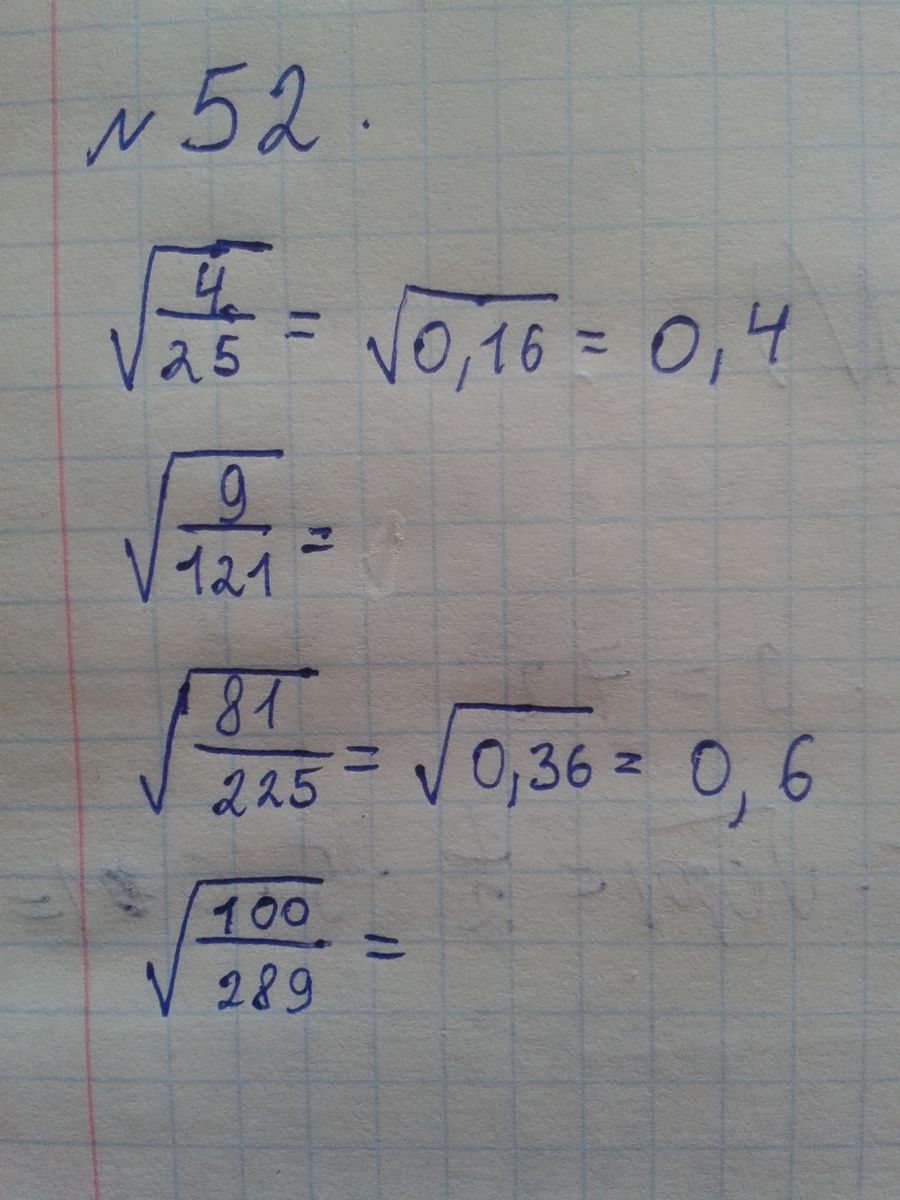 № 52.
√(4/25) = √0,16 = 0,4
√(9/121) =
√(81/225) = √0,36 = 0,6
√(100/289) =